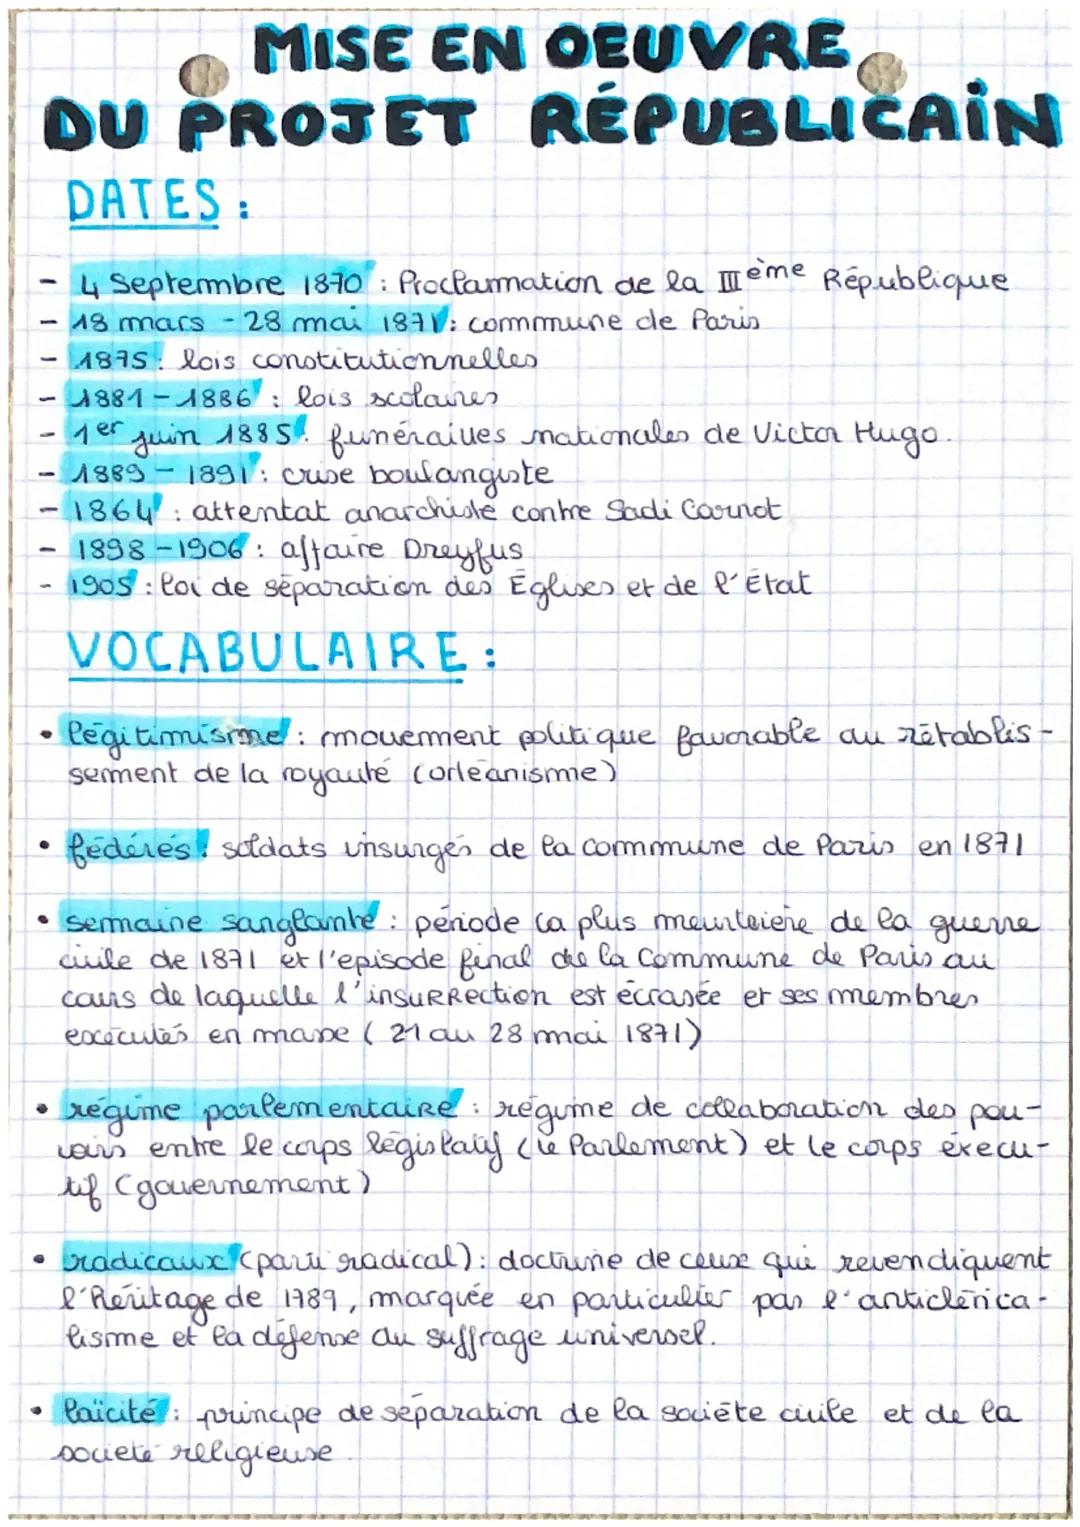 MISE EN OEUVRE
DU PROJET RÉPUBLICAIN
DATES :
- 4 Septembre 1870 : Proclammation de la IIIème République
- 18 mars - 28 mai 1871 : commmune de Paris
- 1875 : lois constitutionnelles
- 1881 - 1886 : lois scolaires
- 1er juin 1885 : funérailles nationales de Victor Hugo.
- 1889 - 1891 : crise boulangiste
- 1864 : attentat anarchiste contre Sadi Carnot
- 1898 - 1906 : affaire Dreyfus
- 1905 : loi de séparation des Églises et de l'État
VOCABULAIRE :
• légitimisme : mouvement politique favorable au rétablis-
sement de la royauté (orléanisme)
• fédérés : soldats insurgés de la commune de Paris en 1871
• semaine sanglante : période la plus meurtrière de la guerre
civile de 1871 et l'episode final de la Commune de Paris au
cours de laquelle l'insurrection est écrasée et ses membres
exécutés en masse (21 au 28 mai 1871)
• régime parlementaire : régime de collaboration des pou-
voirs entre le corps législatif (le Parlement) et le corps éxecu-
tif (gouvernement)
• radicaux (parti radical) : doctrine de ceux qui revendiquent
l'Héritage de 1789, marquée en particulier par l'anticlérica-
lisme et la défense du suffrage universel.
• laïcité : principe de séparation de la société civile et de la
société religieuse.